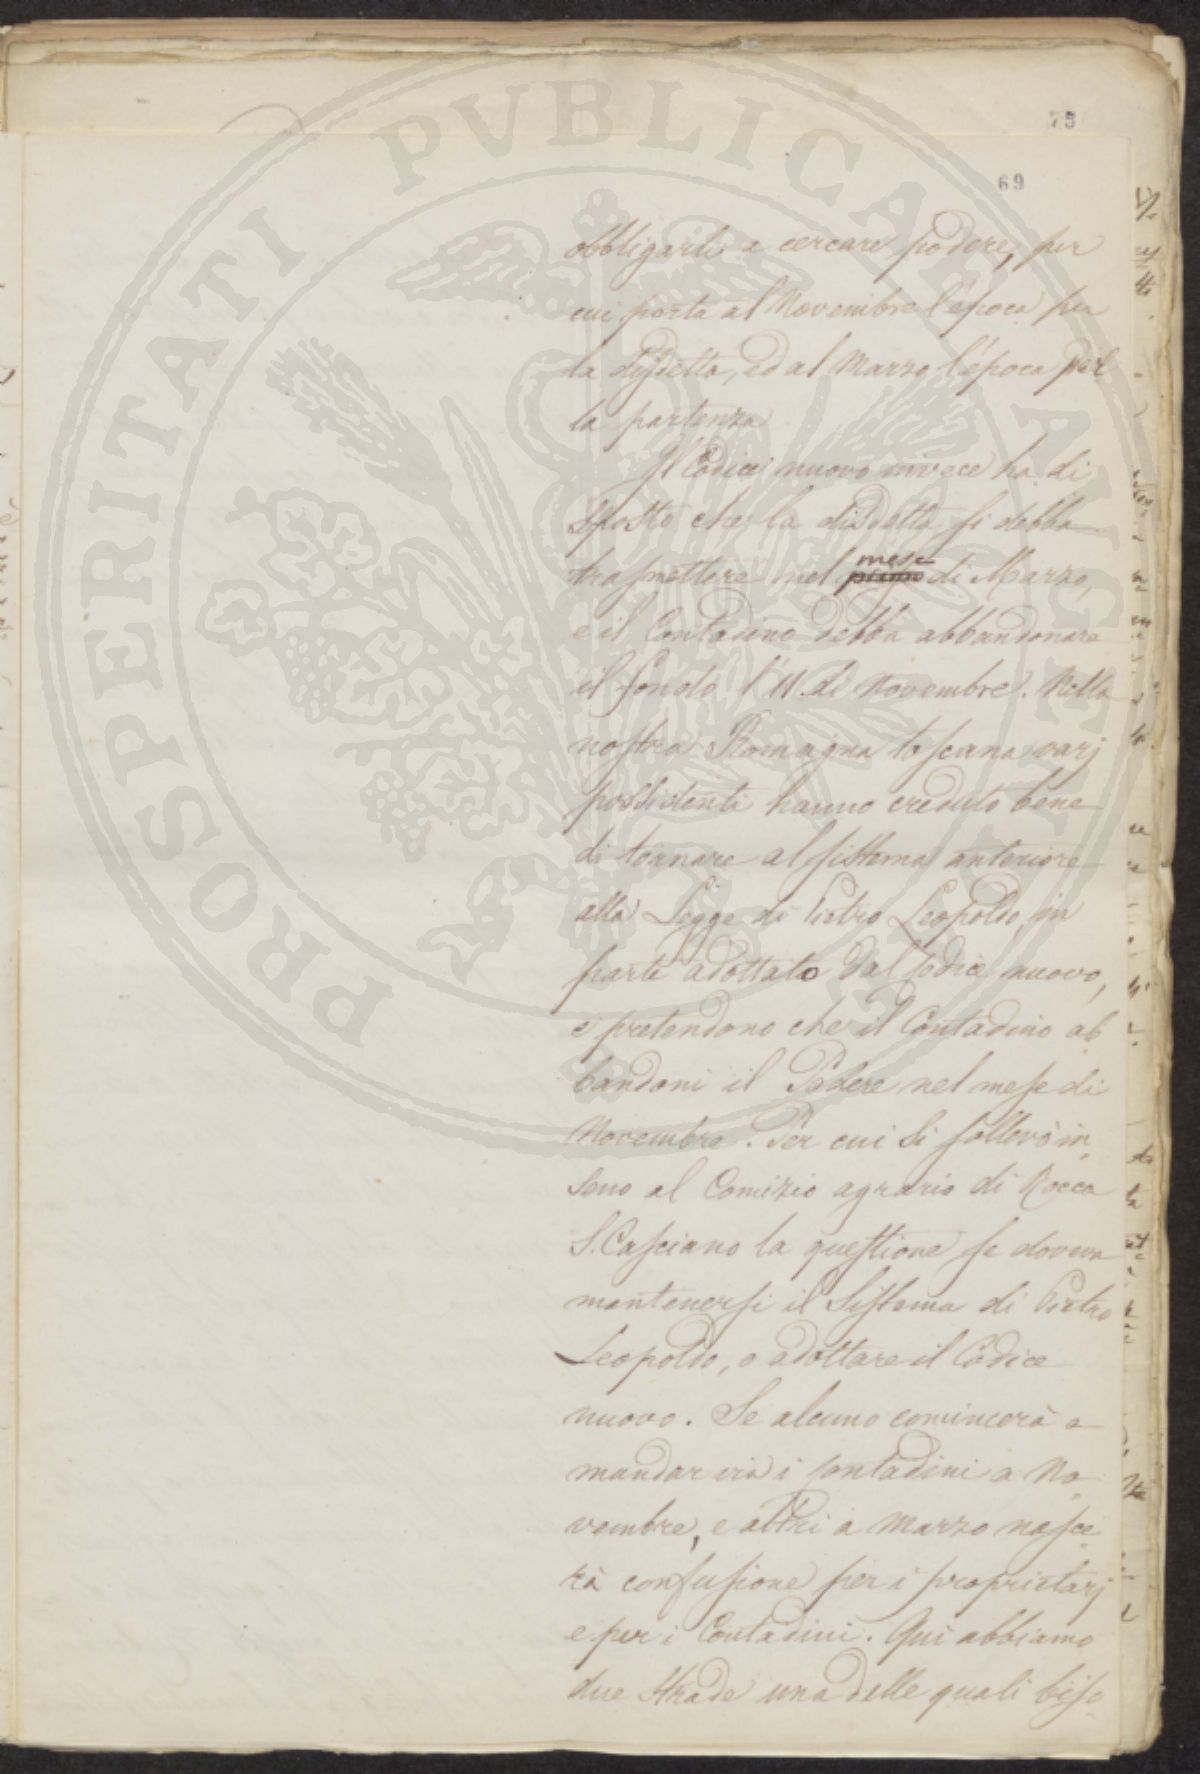 PROSPERITATI PVBLICAE AVGENDAE
75
69
obbligarli a cercare podere, per
cui porta al Novembre l'época per
la disdetta, ed al Marzo l'época per
la partenza
Il Codice nuovo invece ha di
sposto che la disdetta si debba
trasmettere nel mese di Marzo,
e il Contadino debba abbandonare
il fondo l'11. di Novembre. Nella
nostra Romagna toscana varj
possidenti hanno creduto bene
di tornare al sistema anteriore
alla Legge di Pietro Leopoldo, in
parte adottato dal Codice nuovo,
e pretendono che il Contadino ab
bandoni il Podere nel mese di
Novembre. Per cui si sollevò in
seno al Comizio agrario di Rocca
S. Casciano la questione se doveva
mantenersi il Sistema di Pietro
Leopoldo, o adottare il Codice
nuovo. Se alcuno comincerà a
mandar via i contadini a No
vembre, e altri a Marzo nasce
rà confusione per i proprietarj
e per i Contadini. Qui abbiamo
due strade una delle quali biso